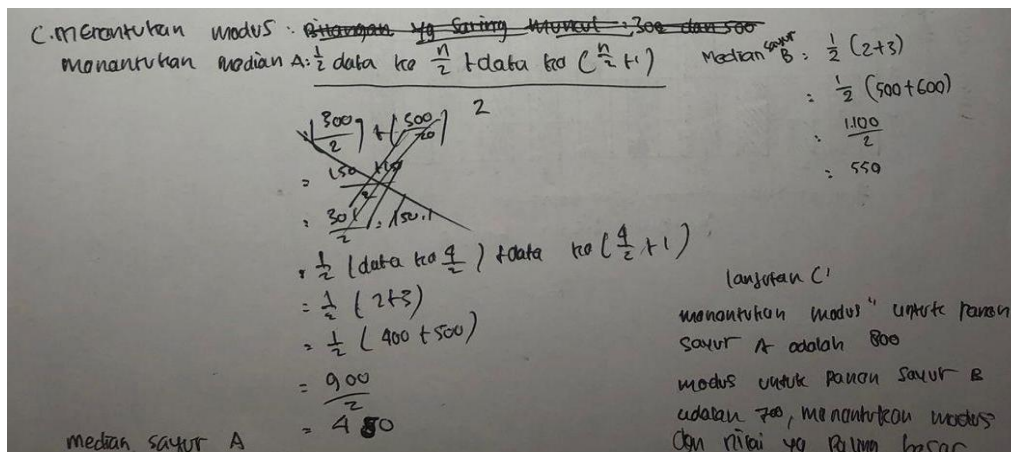 C. menentukan modus : Bilangan yg sering muncul : 300 dan 500
menentukan median A : 1/2 data ke n/2 + data ke (n/2 + 1)
2
(300/2) + (500/20)
= 150 +10 / 2
= 301/2 = 150.1
= 1/2 (data ke 4/2) + data ke (4/2 + 1)
= 1/2 (2+3)
= 1/2 (400 + 500)
= 900/2
median sayur A = 450
Median sayur B : 1/2 (2+3)
: 1/2 (500+600)
: 1.100/2
: 550
lanjutan C'
menentukan modus" untuk panen
sayur A adalah 800
modus untuk panen sayur B
adalah 700, menentukan modus
dan nilai yg paling besar